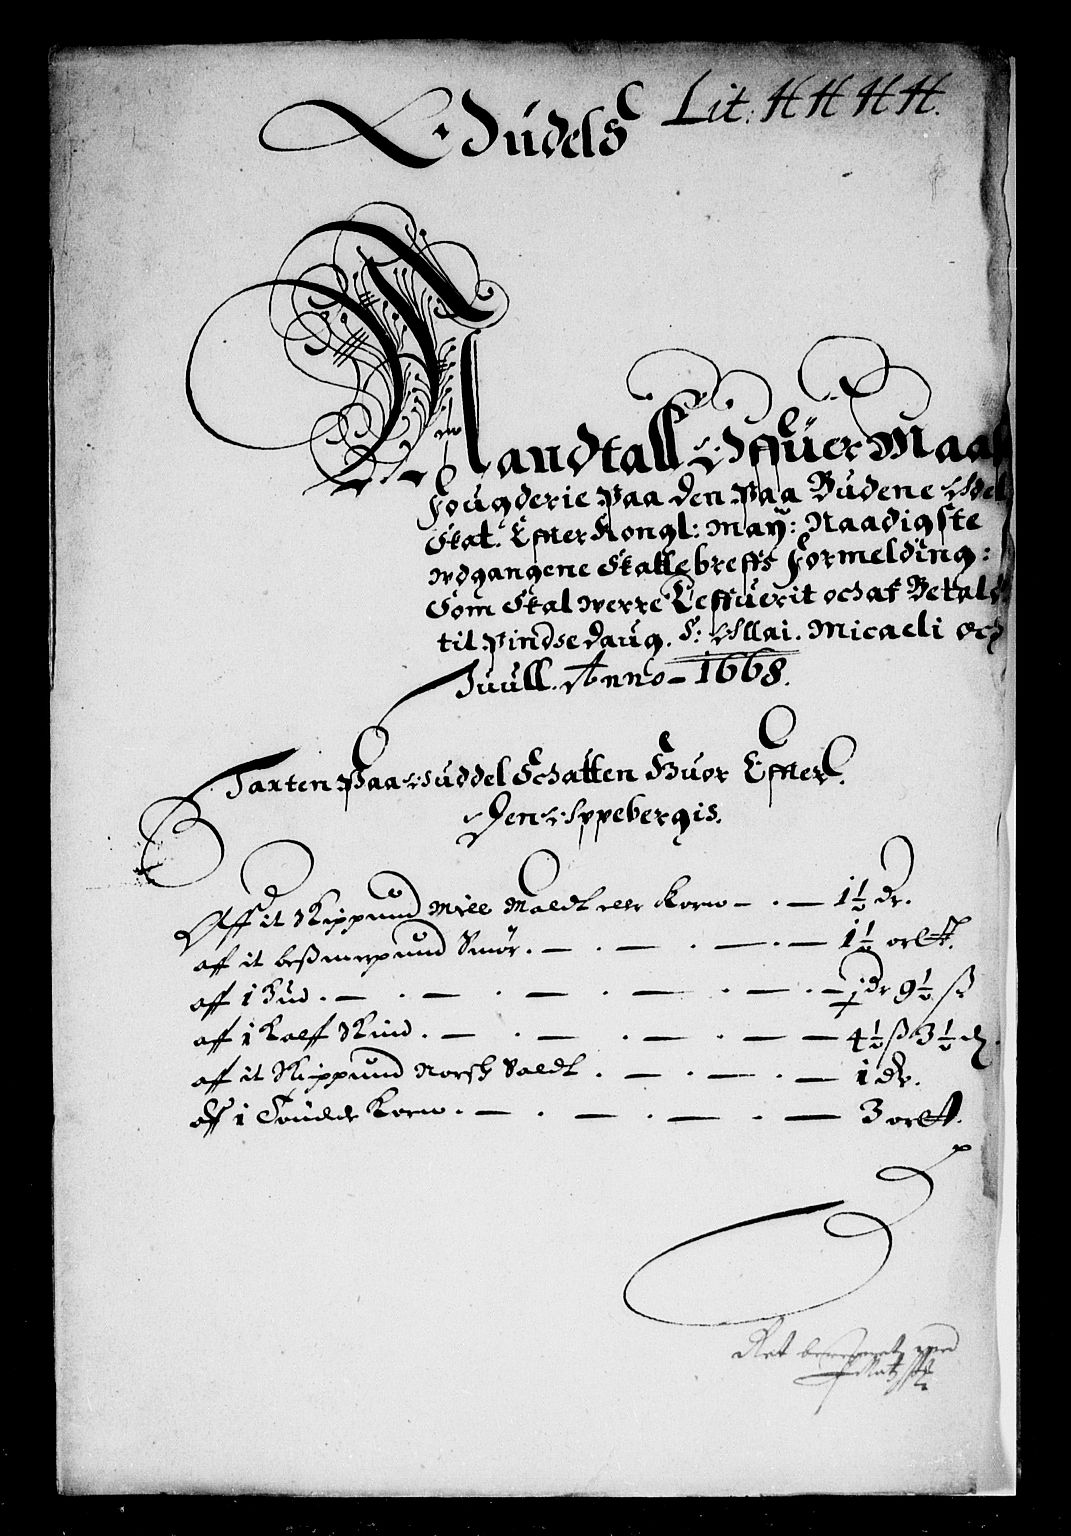 Lit: HHHH.
Odels
Mandtall Offuer Maals
fougderie Paa den Paa Budene Odel
Skat. Effter Kongl: May: Naadigste
wdgangene Skattebreffs formelding:
Som Skal werre Leffuerit och af Betald
til Pindse daug. S: Ollai. Micaeli och
Juull. Anno 1668.
Taxten Paa Oddel Schatten Huor Effter
den Oppebergis.
Aff it Skippund Miell Maldt eller Korn - . - 1½ dr.
aff it beszmerpund Smör. - . - . - . - 1½ ortt.
aff 1 Hud . - . - . - . - . - . - 1 dr 9½ ß
aff 1 Kalff Skind . - . - . - . - 4½ ß 3½ d.
aff it Skippund Norsk Saldt . - . - . - 1 dr.
Aff 1 Tönde Korn . - . - . - . - 3 ortt.
Ret